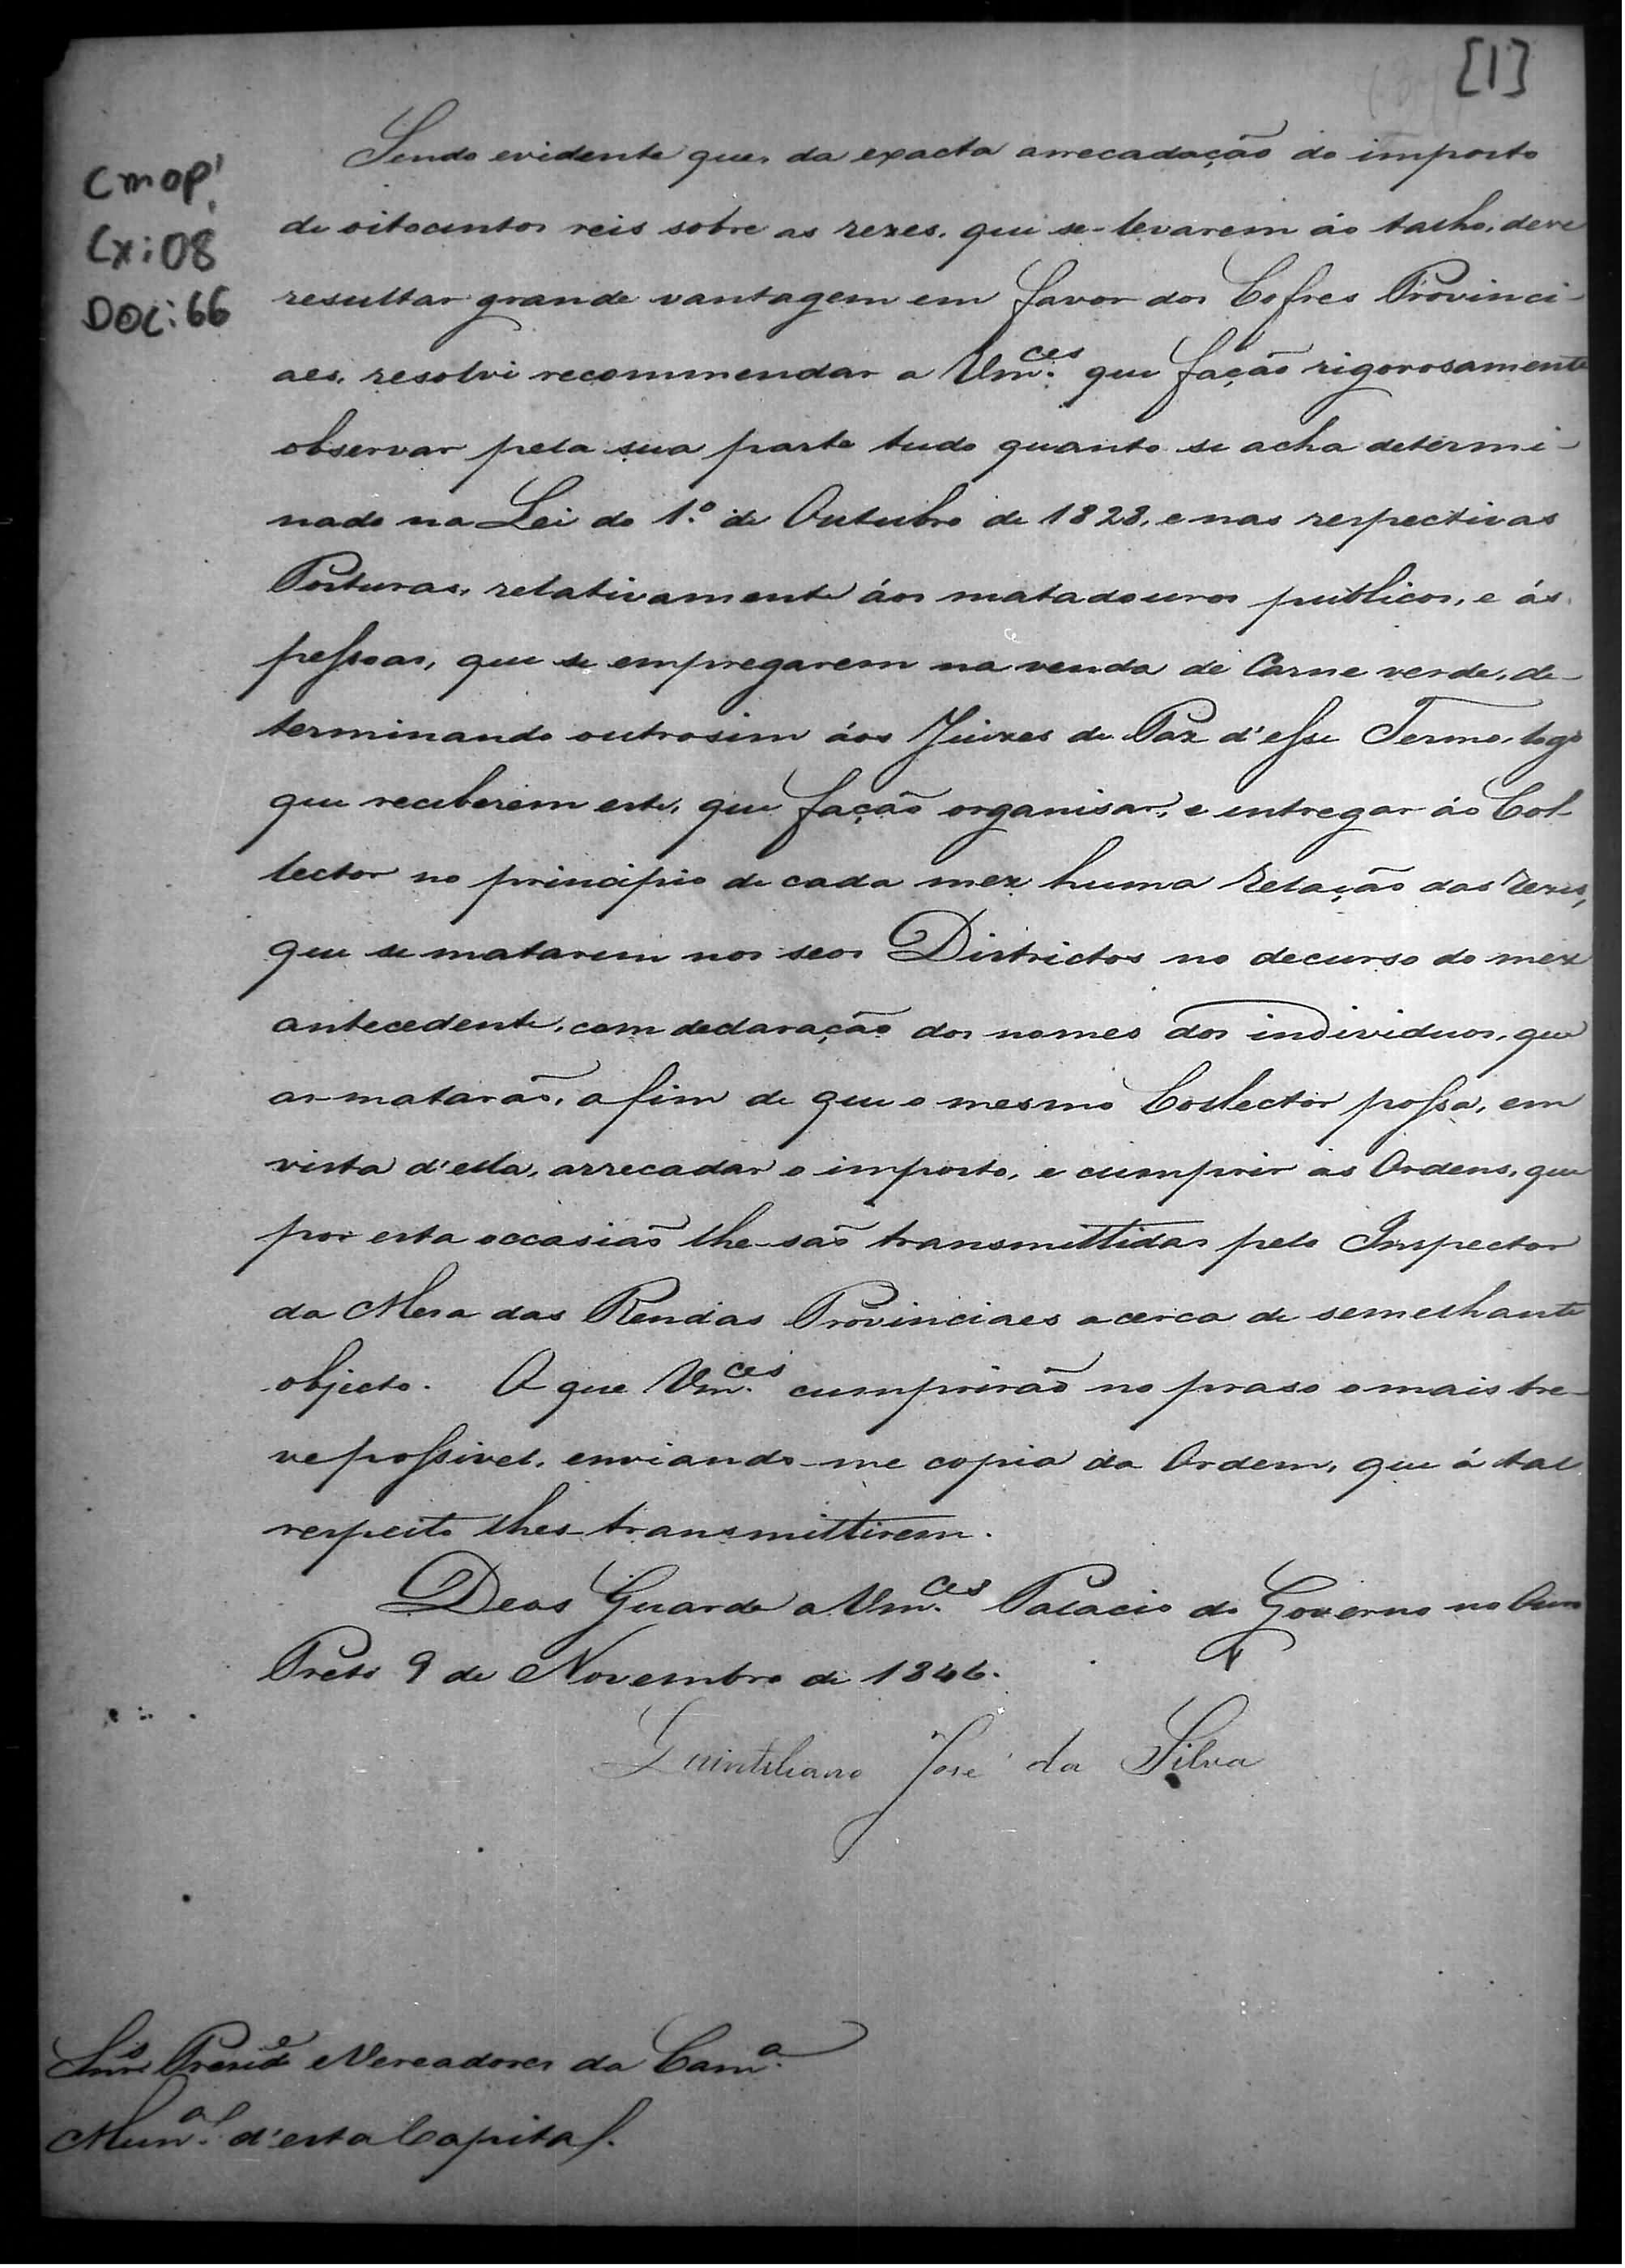 [1]
CMOP
Cx: 08
DOC: 66
Sendo evidente que, da exacta arrecadação do imposto
de oitocentos reis sobre as rezes, que se levarem áo talho, deve
resultar grande vantagem em favor dos Cofres Provinci-
aes, resolvi recommendar a Vm.ces que fação rigorosamente
observar pela sua parte tudo quanto se acha determi-
nado na Lei do 1.º de Outubro de 1828, e nas respectivas
Posturas, relativamente áos matadouros publicos, e ás
pessoas, que se empregarem na venda de Carne verde, de-
terminando outrosim áos Juizes de Paz d'esse Termo, logo
que receberem este, que fação organisar, e entregar áo Col-
lector no principio de cada mez huma relação das rezes,
que se matarem nos seos Districtos no decurso do mez
antecedente, com declaração dos nomes dos individuos, que
as matarão, a fim de que o mesmo Collector possa, em
vista d'ella, arrecadar o imposto, e cumprir as Ordens, que
por esta occasião lhe são transmittidas pelo Inspector
da Mesa das Rendas Provinciaes acerca de semelhante
objecto. O que Vm.ces cumprirão no praso o mais bre-
ve possivel, enviando-me copia da Ordem, que á tal
respeito lhes transmittirem.
Deos Guarde a Vm.ces Palacio do Governo no Ouro
Preto 9 de Novembro de 1846.
Quintiliano José da Silva
Snr.s Presid.e e Vereadores da Cam.a
Mun.al d'esta Capital.